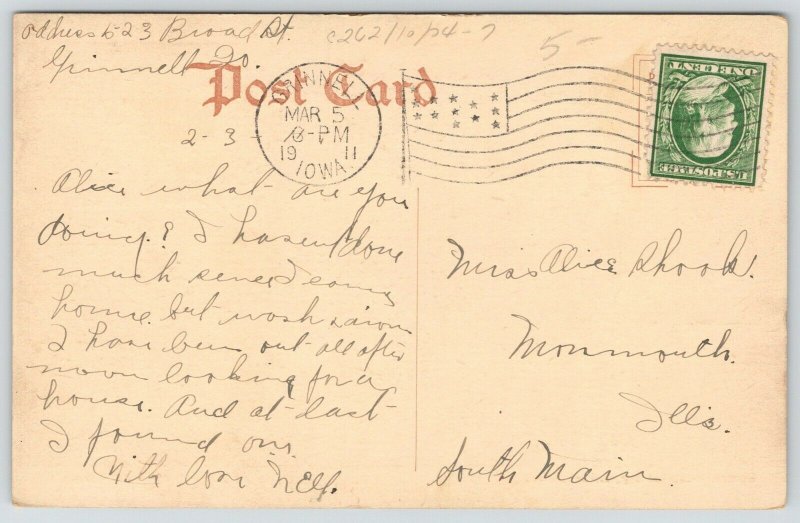 address 523 Broad St.
Grinnell Io.
c262/10/24-7
5-
Post Card
GRINNELL
MAR 5
6-PM
1911
IOWA.
2-3-
U.S. POSTAGE
ONE CENT
Alice what are you
doing? I havent done
much sence I came
home but wash & iron
I have been out all after
noon looking for a
house. And at last
I found one.
With love Nell.
Miss Alice Shook.
Monmouth.
Ills.
South Main.